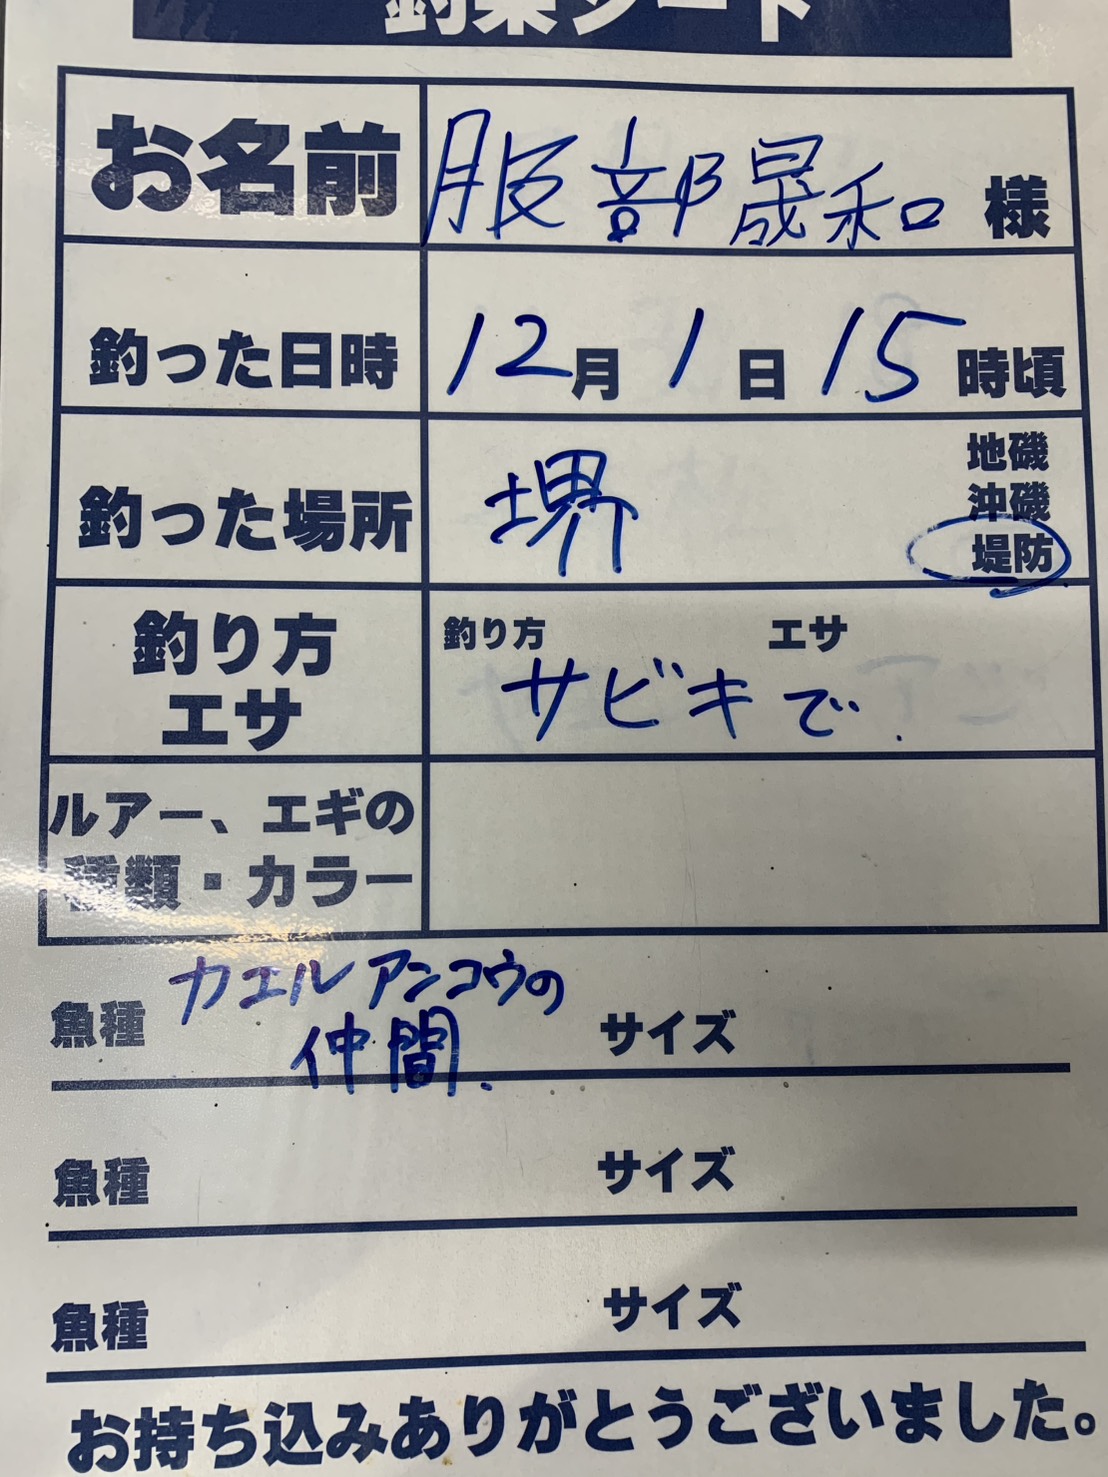 釣果シート
お名前 服部晟和 様
釣った日時 12月1日15時頃
釣った場所 堺 地磯
沖磯
堤防
釣り方
エサ
釣り方 エサ
サビキで.
ルアー、エギの
種類・カラー
魚種 カエルアンコウの
仲間. サイズ
魚種 サイズ
魚種 サイズ
お持ち込みありがとうございました。